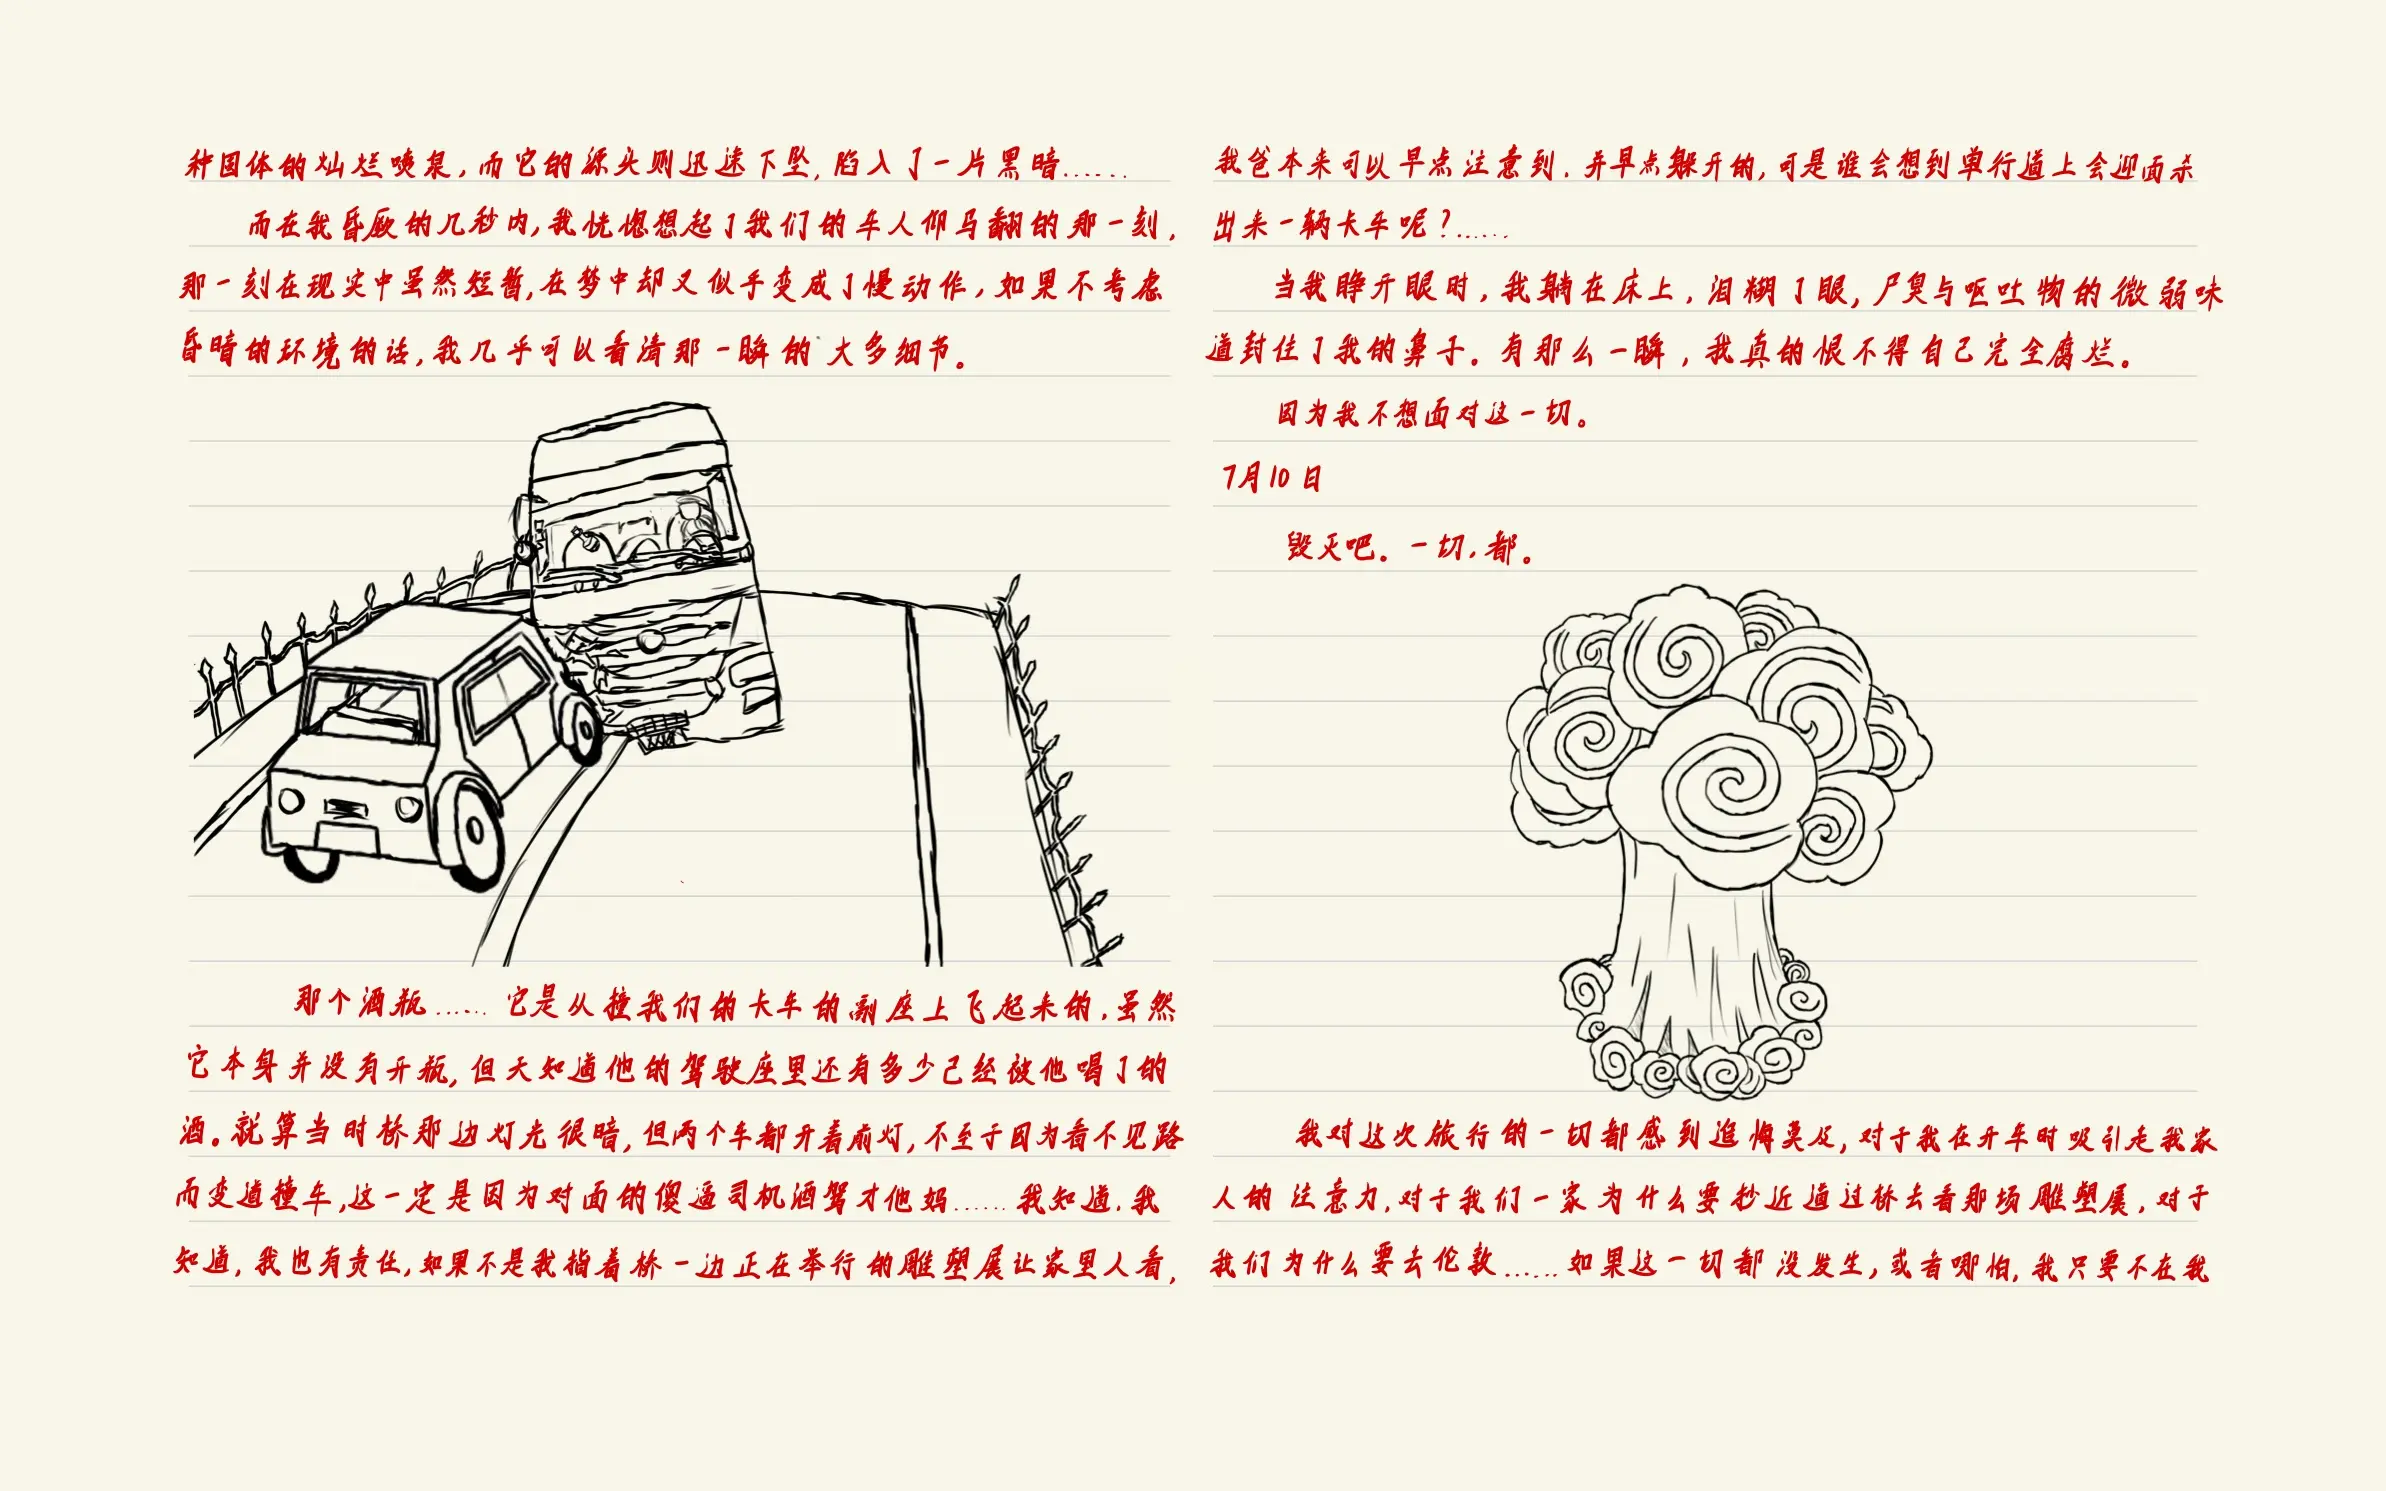 种固体的灿烂喷泉，而它的源头则迅速下坠，陷入了一片黑暗……
而在我昏厥的几秒内，我恍惚想起了我们的车人仰马翻的那一刻，
那一刻在现实中虽然短暂，在梦中却又似乎变成了慢动作，如果不考虑
昏暗的环境的话，我几乎可以看清那一瞬的大多细节。
那个酒瓶……它是从撞我们的卡车的副座上飞起来的，虽然
它本身并没有开瓶，但天知道他的驾驶座里还有多少已经被他喝了的
酒。就算当时桥那边灯光很暗，但两个车都开着前灯，不至于因为看不见路
而变道撞车，这一定是因为对面的傻逼司机酒驾才他妈……我知道，我
知道，我也有责任，如果不是我指着桥一边正在举行的雕塑展让家里人看，
我爸本来可以早点注意到，并早点躲开的，可是谁会想到单行道上会迎面杀
出来一辆卡车呢？……
当我睁开眼时，我躺在床上，泪糊了眼，尸臭与呕吐物的微弱味
道封住了我的鼻子。有那么一瞬，我真的恨不得自己完全腐烂。
因为我不想面对这一切。
7月10日
毁灭吧。一切，都。
我对这次旅行的一切都感到追悔莫及，对于我在开车时吸引走我家
人的注意力，对于我们一家为什么要抄近道过桥去看那场雕塑展，对于
我们为什么要去伦敦……如果这一切都没发生，或者哪怕，我只要不在我